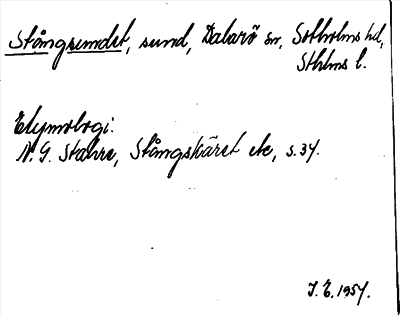 Stångsundet, sund, Dalarö sn, Sotholms hd,
Sthlms l.
Etymologi:
N. G. Stahre, Stångskäret etc, s. 34.
J. E. 1957.